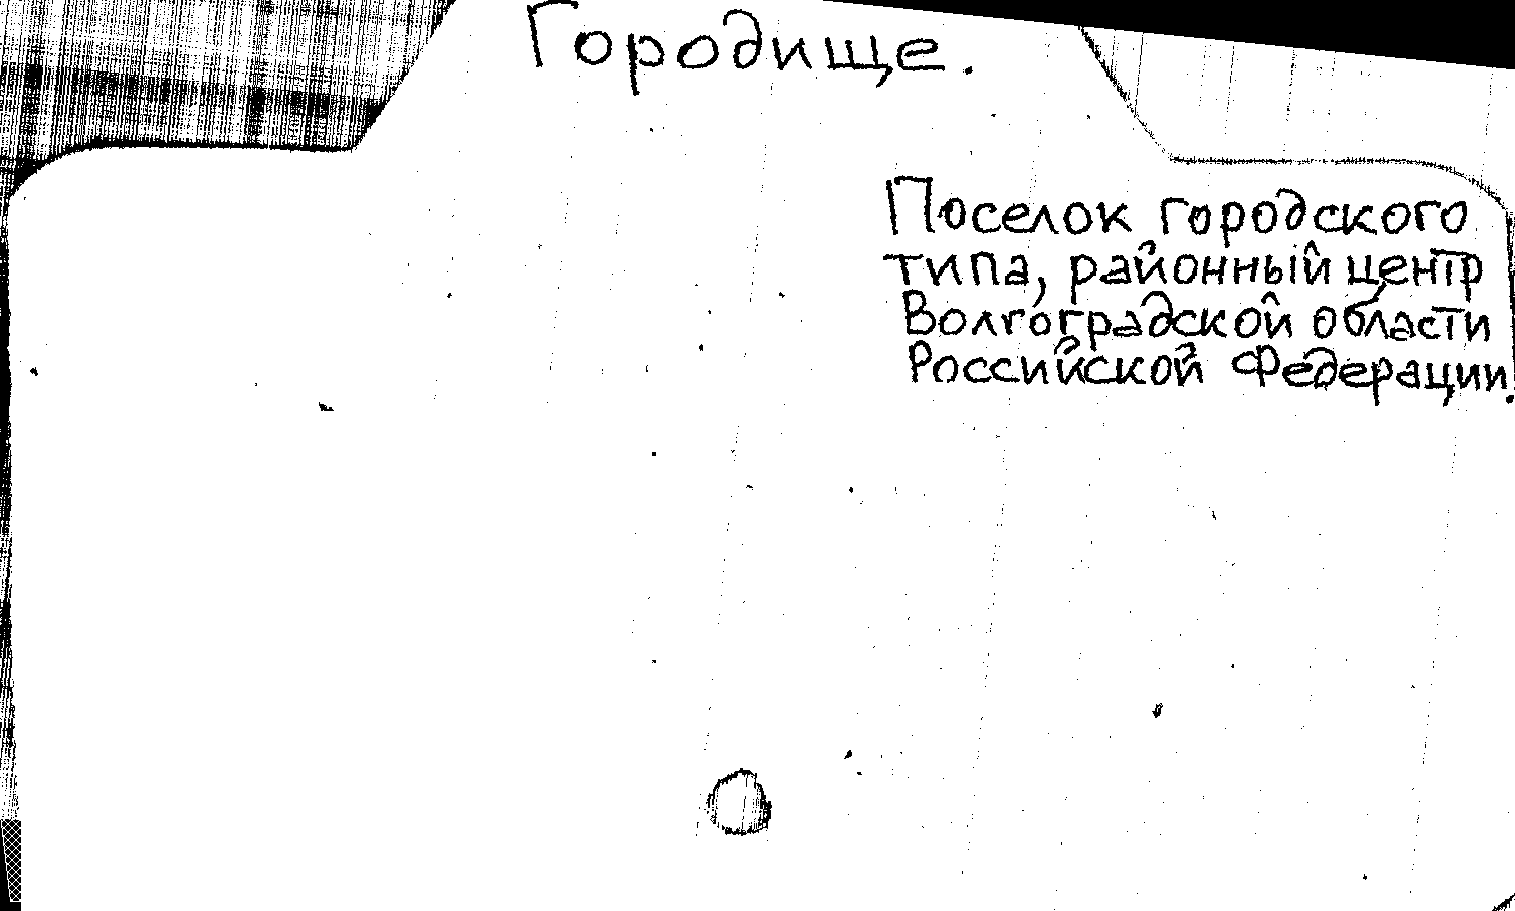 Городище.
Поселок городского
типа, районный центр
Волгоградской области
Российской Федерации.